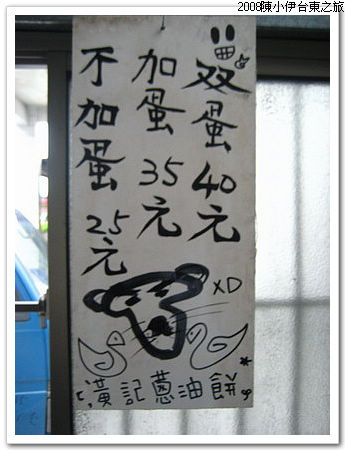 2008陳小伊台東之旅
双蛋 40元
加蛋 35元
不加蛋 25元
XD
潢記蔥油餅